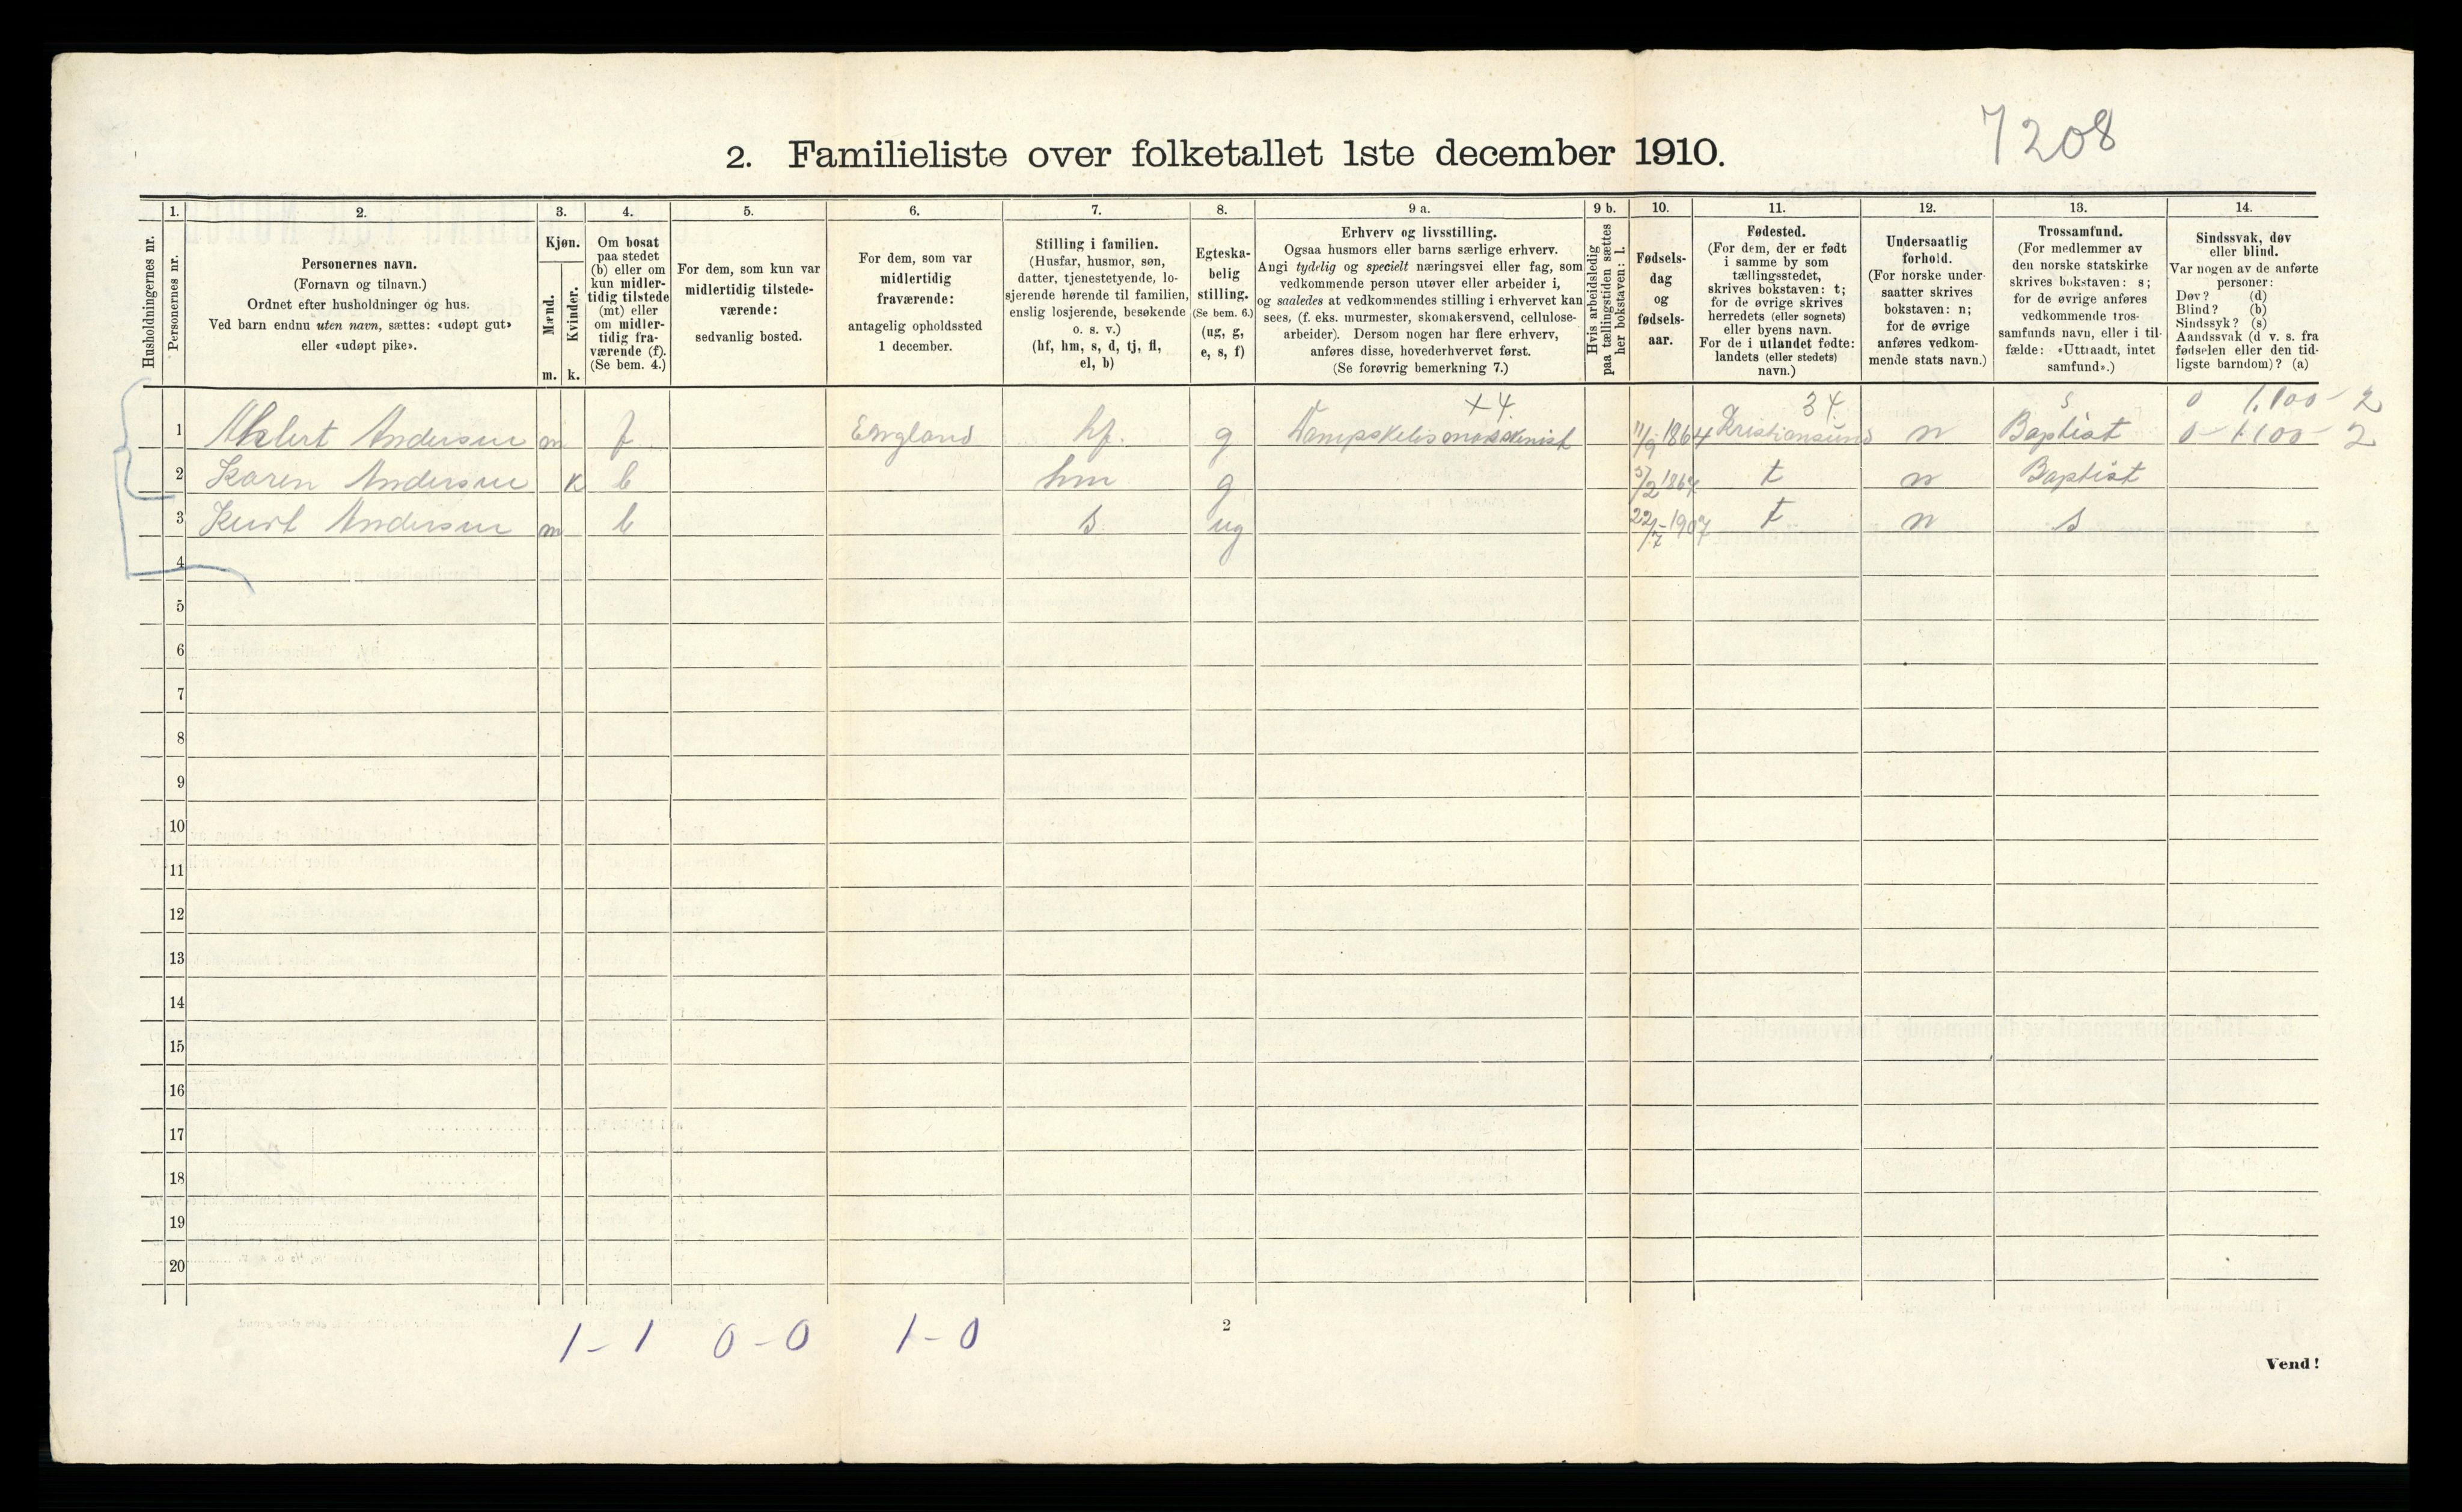 7208
2. Familieliste over folketallet 1ste december 1910.
Husholdningernes nr.
1.
Personernes nr.
2.
Personernes navn.
(Fornavn og tilnavn.)
Ordnet efter husholdninger og hus.
Ved barn endnu uten navn, sættes: «udøpt gut»
eller «udøpt pike».
3.
Kjøn.
Mænd.
Kvinder.
m. k.
4.
Om bosat
paa stedet
(b) eller om
kun midler-
tidig tilstede
(mt) eller
om midler-
tidig fra-
værende (f).
(Se bem. 4.)
5.
For dem, som kun var
midlertidig tilstede-
værende:
sedvanlig bosted.
6.
For dem, som var
midlertidig
fraværende:
antagelig opholdssted
1 december.
7.
Stilling i familien.
(Husfar, husmor, søn,
datter, tjenestetyende, lo-
sjerende hørende til familien,
enslig losjerende, besøkende
o. s. v.)
(hf, hm, s, d, tj, fl,
el, b)
8.
Egteska-
belig
stilling.
(Se bem. 6.)
(ug, g,
e, s, f)
9 a.
Erhverv og livsstilling.
Ogsaa husmors eller barns særlige erhverv.
Angi tydelig og specielt næringsvei eller fag, som
vedkommende person utøver eller arbeider i,
og saaledes at vedkommendes stilling i erhvervet kan
sees, (f. eks. murmester, skomakersvend, cellulose-
arbeider). Dersom nogen har flere erhverv,
anføres disse, hovederhvervet først.
(Se forøvrig bemerkning 7.)
9 b.
Hvis arbeidsledig
paa tællingstiden sættes
her bokstaven: l.
10.
Fødsels-
dag
og
fødsels-
aar.
11.
Fødested.
(For dem, der er født
i samme by som
tællingsstedet,
skrives bokstaven: t;
for de øvrige skrives
herredets (eller sognets)
eller byens navn.
For de i utlandet fødte:
landets (eller stedets)
navn.)
12.
Undersaatlig
forhold.
(For norske under-
saatter skrives
bokstaven: n;
for de øvrige
anføres vedkom-
mende stats navn.)
13.
Trossamfund.
(For medlemmer av
den norske statskirke
skrives bokstaven: s;
for de øvrige anføres
vedkommende tros-
samfunds navn, eller i til-
fælde: «Uttraadt, intet
samfund».)
14.
Sindssvak, døv
eller blind.
Var nogen av de anførte
personer:
Døv? (d)
Blind? (b)
Sindssyk? (s)
Aandssvak (d v. s. fra
fødselen eller den tid-
ligste barndom)? (a)
x4. 34. s 0 1.100 - 2
1 Andersen m f England hf. g 11/9 1864 Kristiansund n Baptist 0 - 1.100 - 2
2 Karen Andersen k b hm g t n Baptist
3 Kurt Andersen m b s ug 22/7-1907 t n s
4
5
6
7
8
9
10
11
12
13
14
15
16
17
18
19
20
1 - 1 0 - 0 1 - 0
2
Vend!